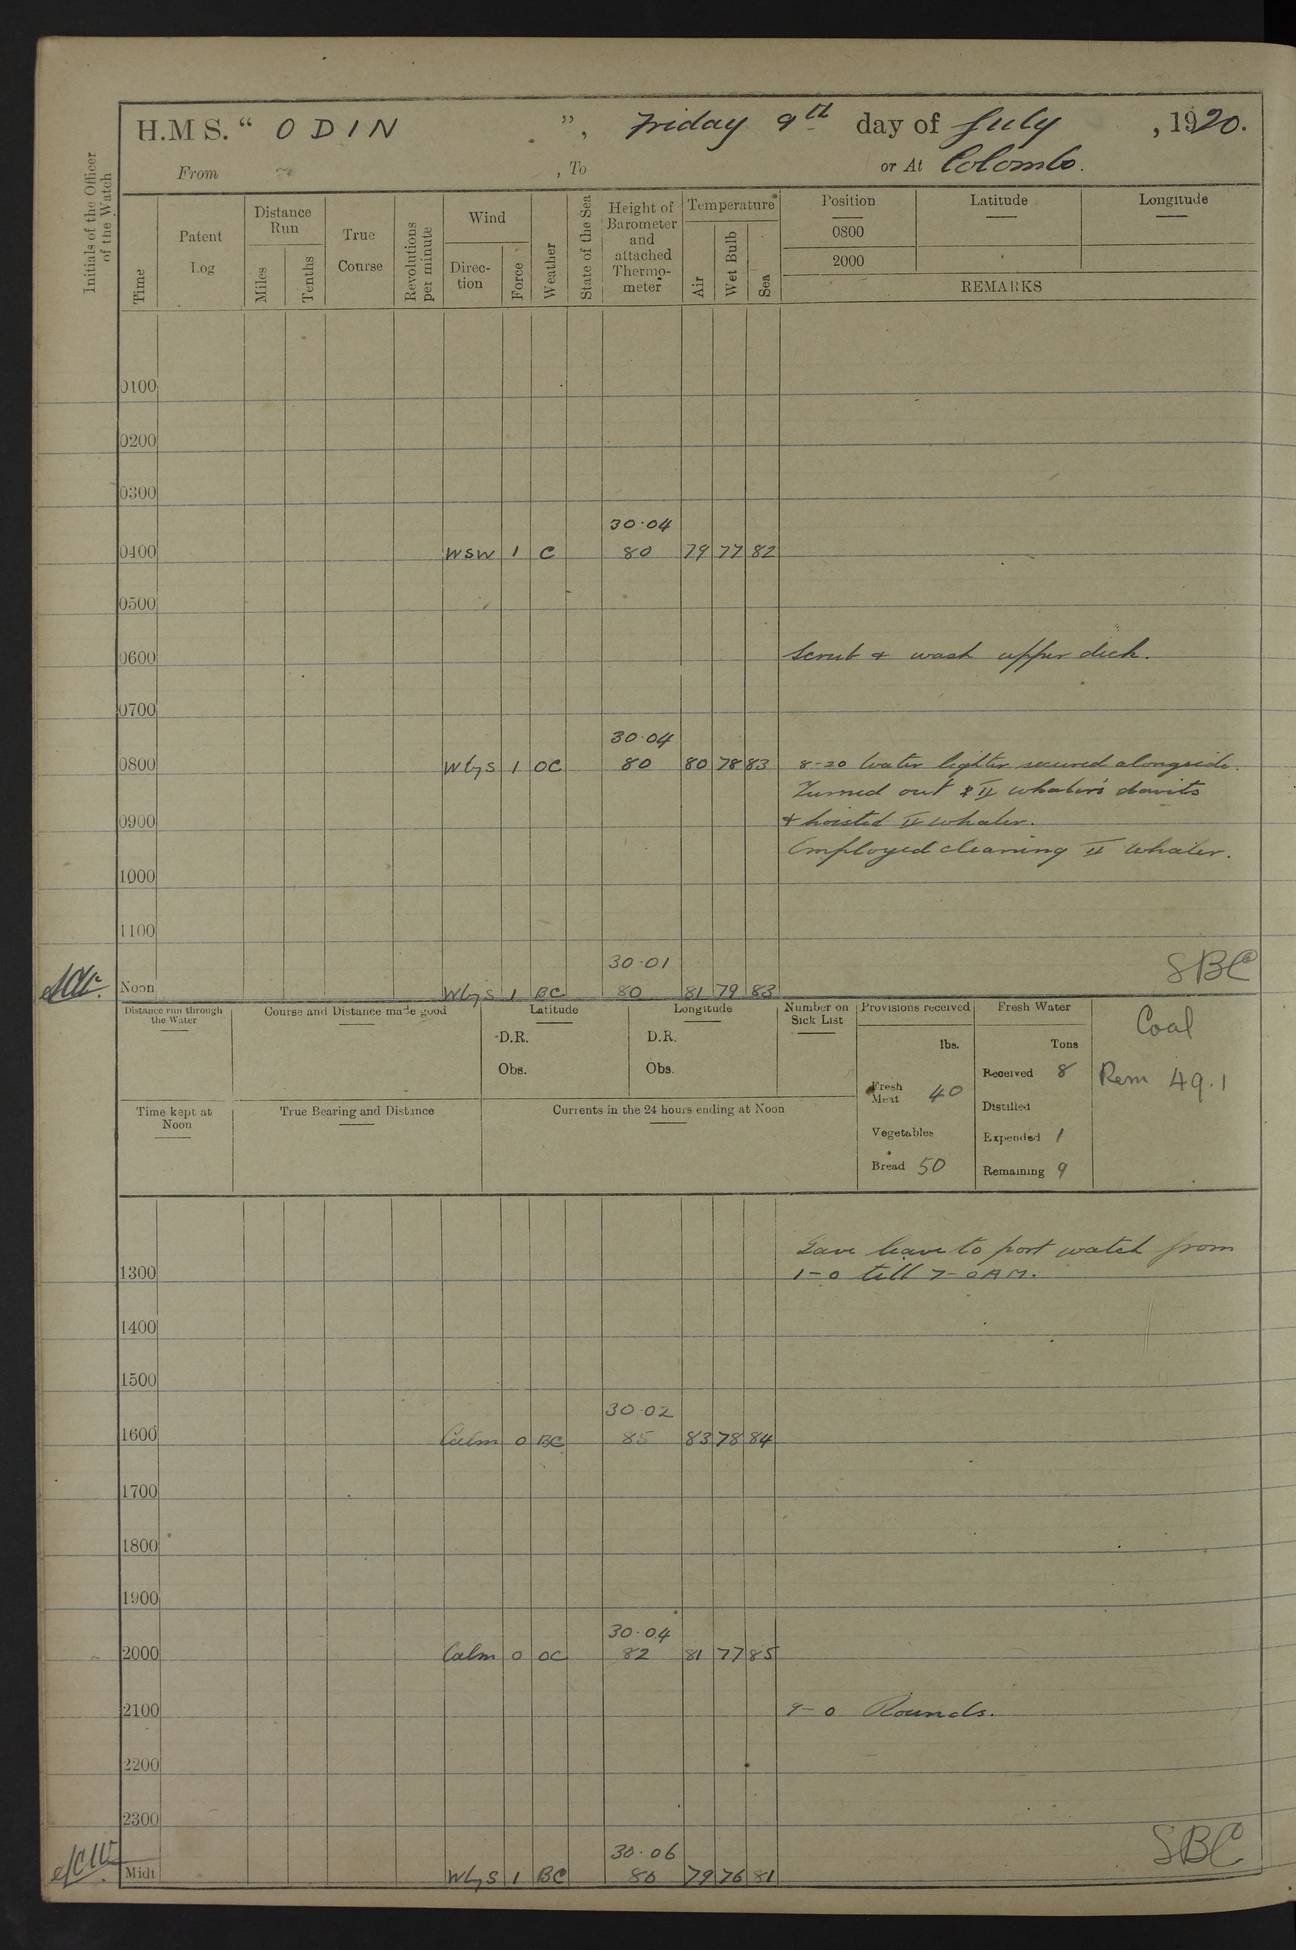 H.M S. “ ODIN ”, Friday 9th day of July , 1920.
From , To or At Colombo.
Initials of the Officer of the Watch
Time
Patent Log
Distance Run
Miles
Tenths
True Course
Revolutions per minute
Wind
Direction
Force
Weather
State of the Sea
Height of Barometer and attached Thermometer
Temperature
Air
Wet Bulb
Sea
Position Latitude Longitude
0800
2000
REMARKS
0100
0200
0300
30.04
0400 WSW 1 C 80 79 77 82
0500
0600 Scrub & wash upper deck.
0700
30.04
0800 WbyS 1 OC 80 80 78 83 8-20 Water lighter secured alongside.
Turned out II whaler's davits
0900 & hoisted II whaler.
Employed cleaning II whaler.
1000
1100
30.01 SBC
Noon WbyS 1 BC 80 81 79 83
Distance run through the Water
Course and Distance made good
Latitude
D.R.
Obs.
Longitude
D.R.
Obs.
Number on Sick List
Provisions received
lbs.
Fresh Meat 40
Vegetables
Bread 50
Fresh Water
Tons
Received 8
Distilled
Expended 1
Remaining 9
Coal
Rem 49.1
Time kept at Noon
True Bearing and Distance
Currents in the 24 hours ending at Noon
Gave leave to port watch from
1300 1-0 till 7-0 AM.
1400
1500
30.02
1600 Calm 0 BC 85 83 78 84
1700
1800
1900
30.04
2000 Calm 0 OC 82 81 77 85
2100 9-0 Rounds.
2200
2300
30.06 SBC
Midt WbyS 1 BC 80 79 76 81